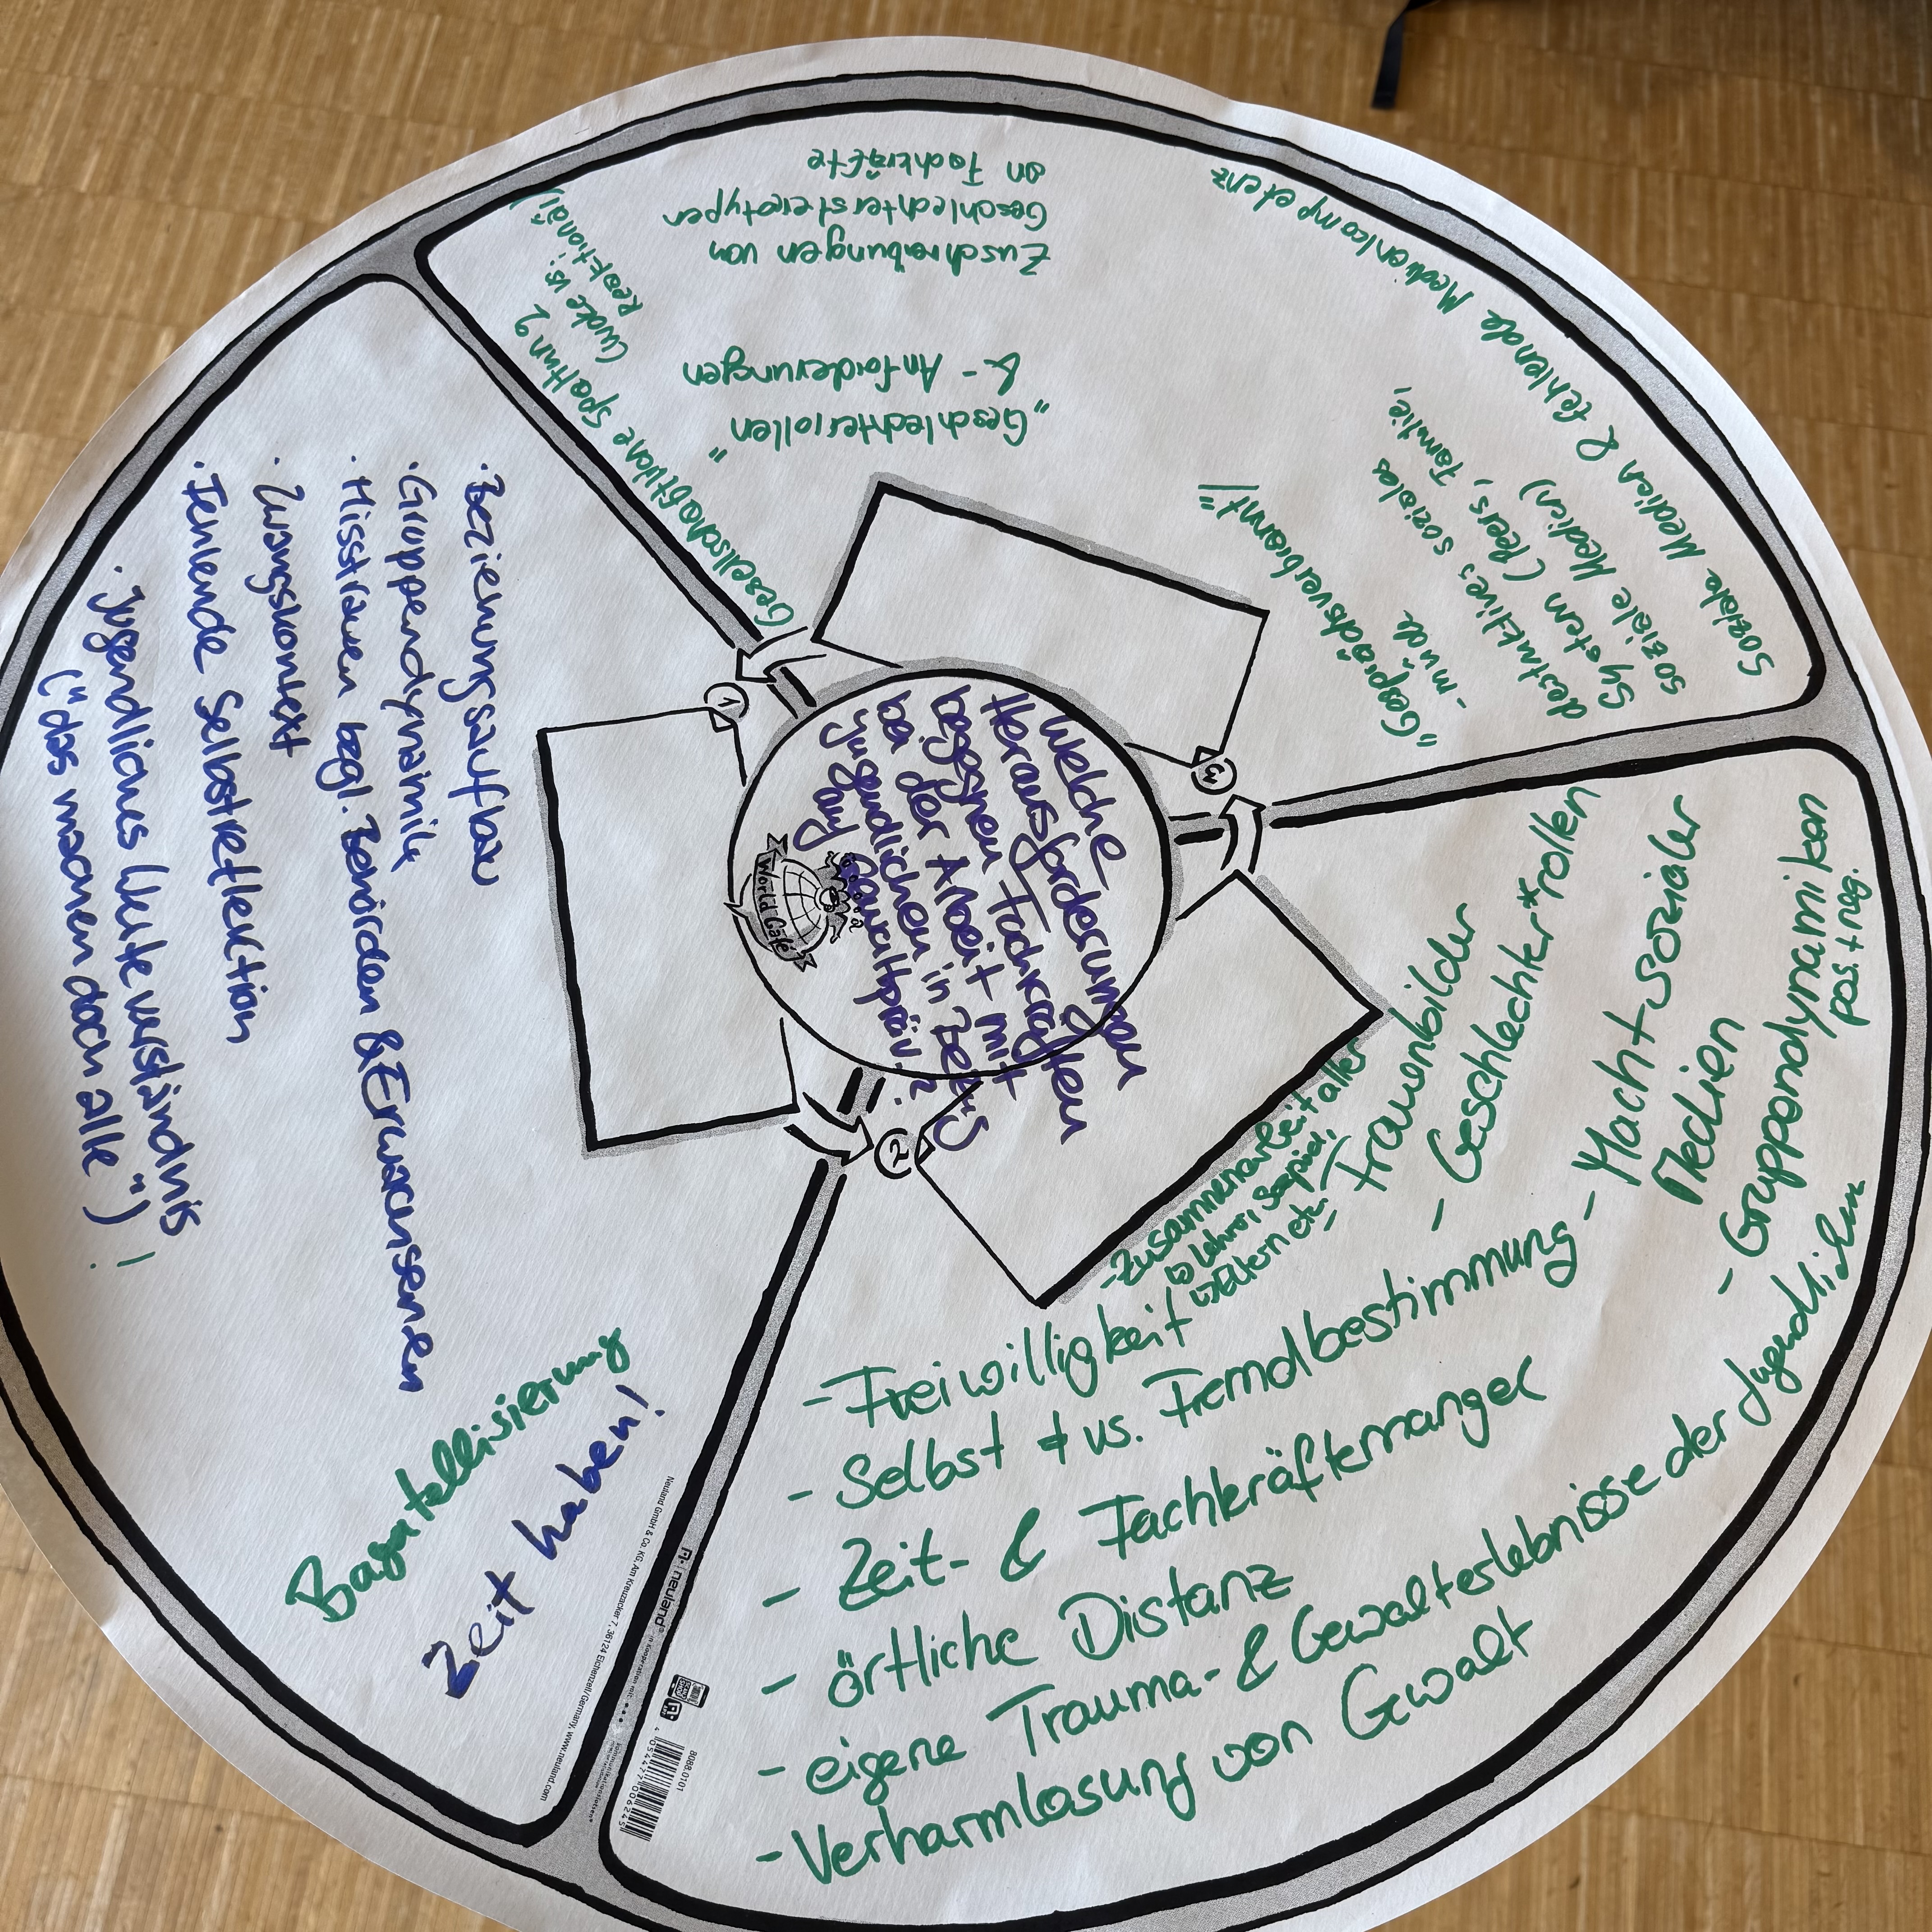 Welche
Herausforderungen
begegnen Fachkräften
bei der Arbeit mit
Jugendlichen in Bezug
auf Gewaltpräv.?
World Café
1
· Beziehungsaufbau
· Gruppendynamik
· Misstrauen bzgl. Behörden & Erwachsenen
· Zwangskontext
· Fehlende Selbstreflektion
· Jugendliches Werteverständnis
("das machen doch alle") !
Bagatellisierung
Zeit haben!
2
- Zusammenarbeit aller
↳ Lehrer, Sozpäd,
↳ Eltern etc.
- Frauenbilder
- Geschlechter*rollen
- Macht sozialer
Medien
- Gruppendynamiken
pos. + neg.
- Freiwilligkeit
- Selbst vs. Fremdbestimmung
- Zeit- & Fachkräftemangel
- örtliche Distanz
- eigene Trauma- & Gewalterlebnisse der Jugendlichen
- Verharmlosung von Gewalt
3
Gesellschaftliche Spaltung
(woke vs.
Reaktionär)
"Geschlechterrollen"
& - Anforderungen
Zuschreibungen von
Geschlechterstereotypen
an Fachkräfte
"Gesprächsverbrannt"/
- müde
destruktives soziales
System (Peers, Familie,
soziale Medien)
Soziale Medien & fehlende Medienkompetenz
Neuland GmbH & Co. KG, Am Kreuzacker 7, 36124 Eichenzell/Germany, www.neuland.com
neuland® in Kooperation mit:
8088.0101